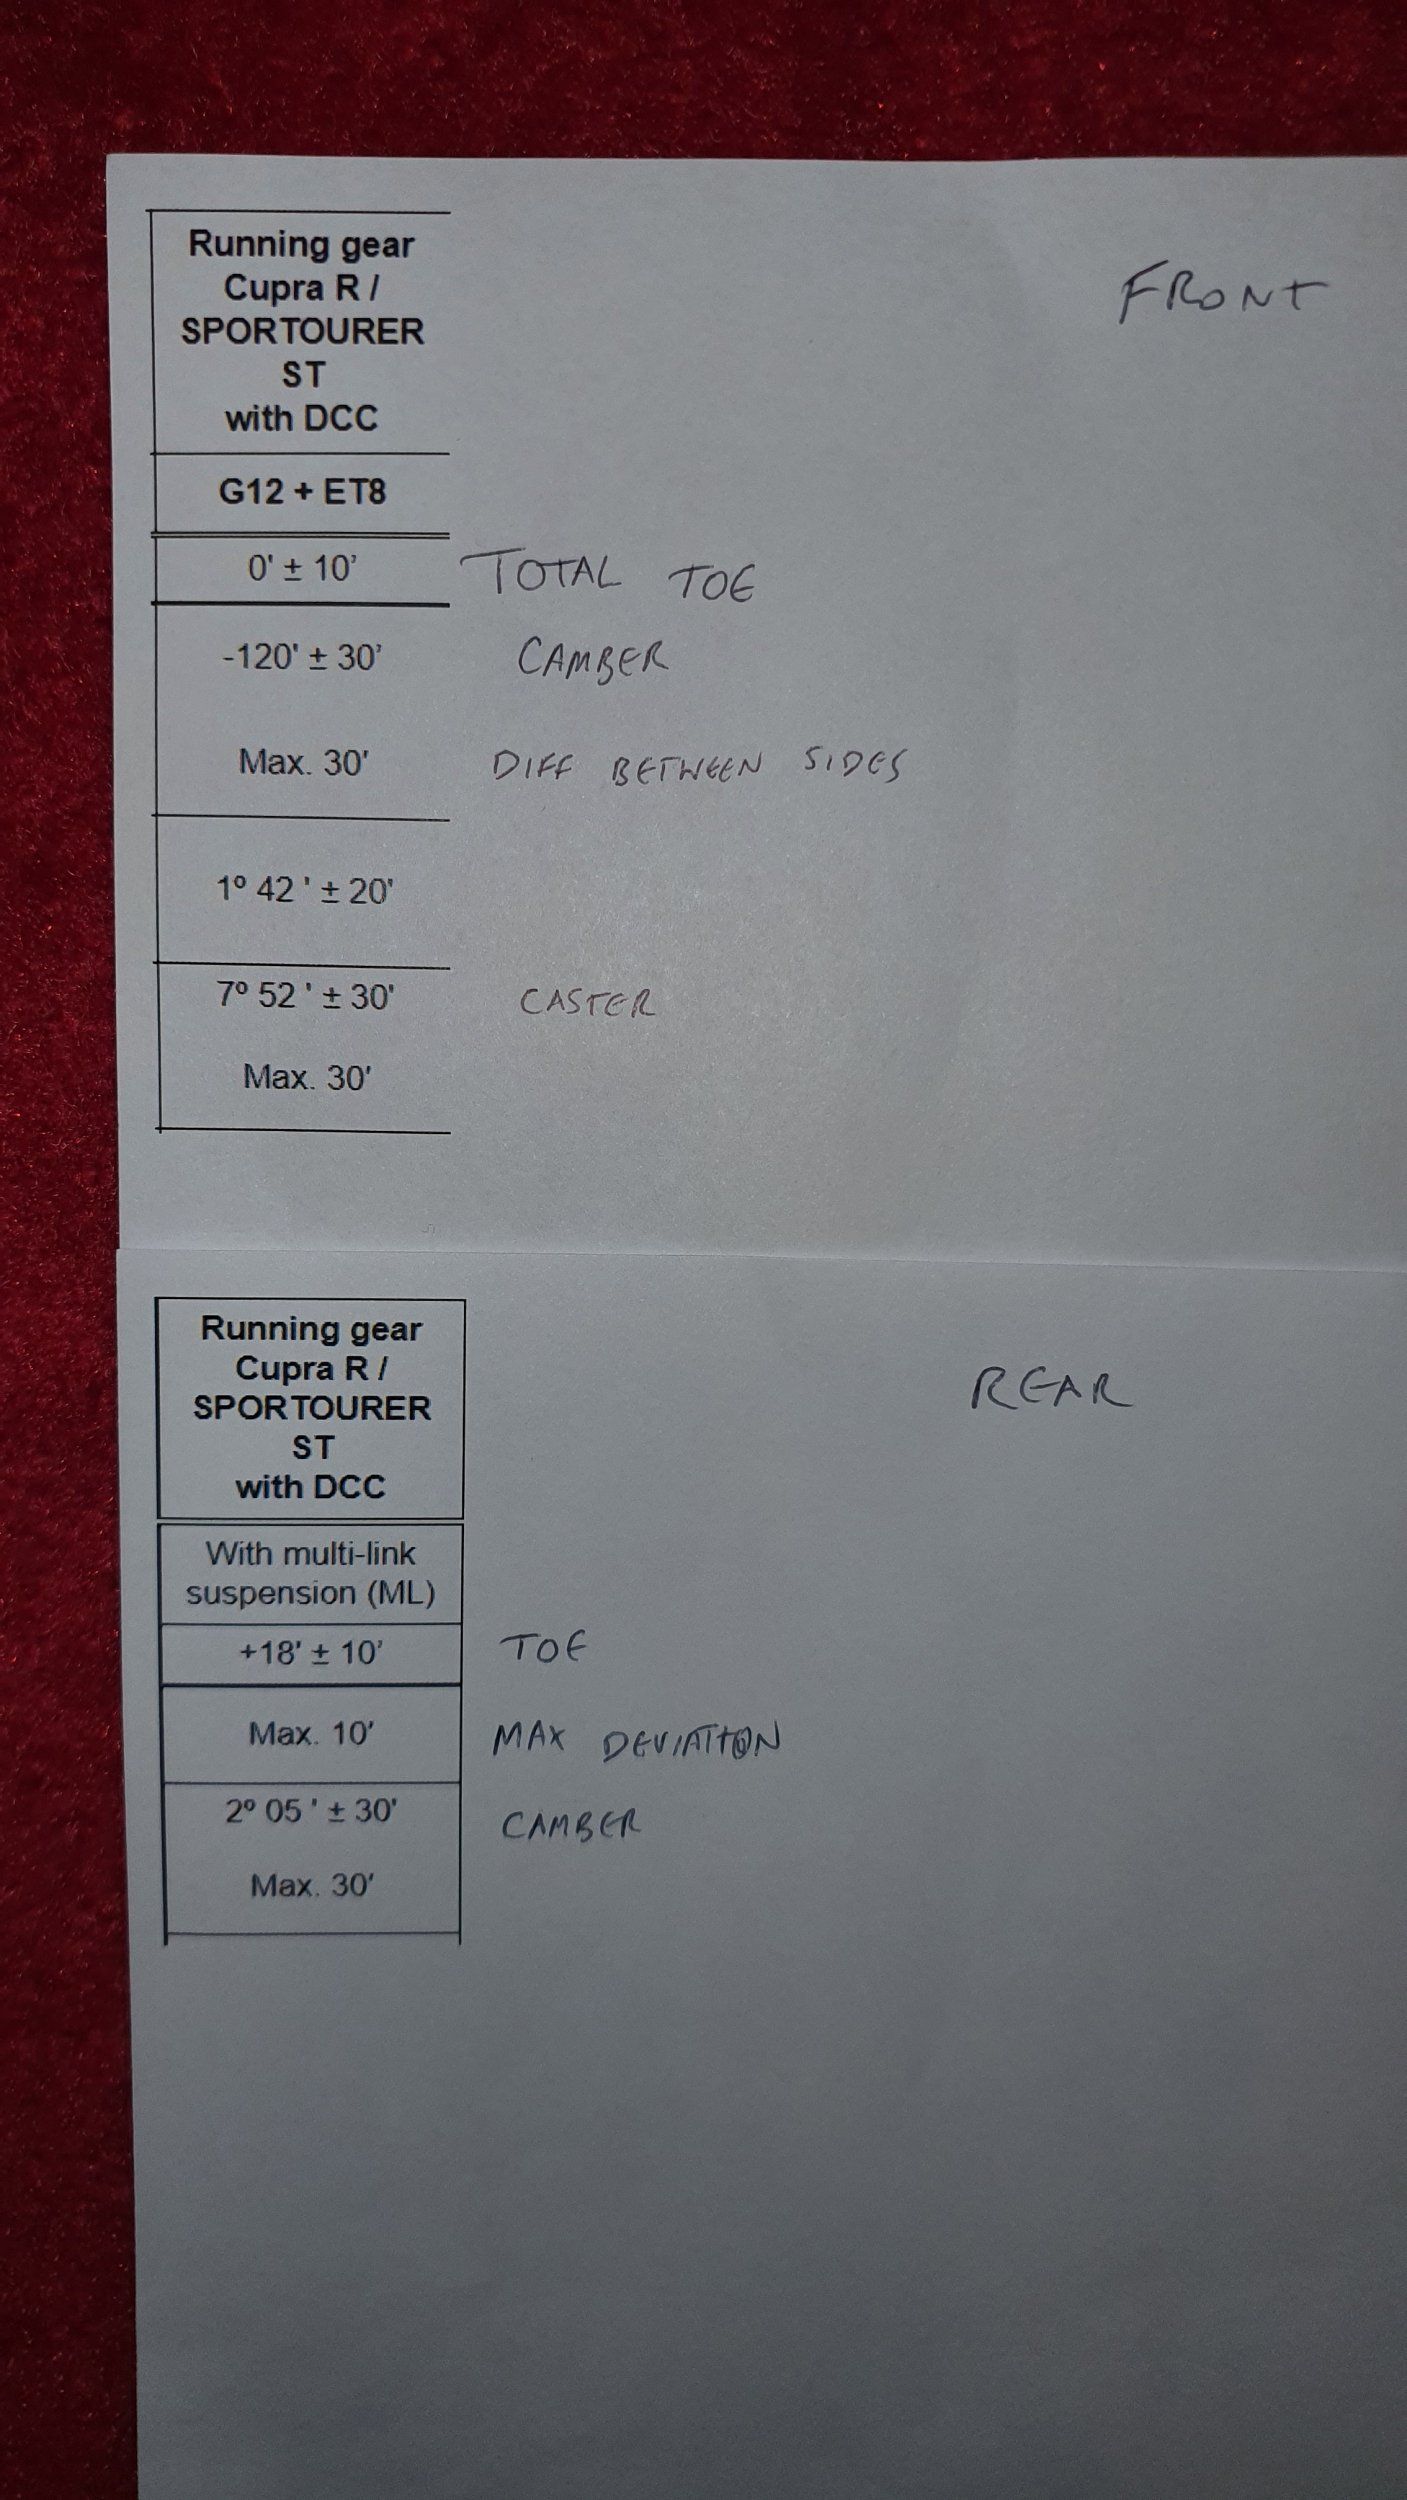 Running gear
Cupra R /
SPORTOURER
ST
with DCC
FRONT
G12 + ET8
0' ± 10' TOTAL TOE
-120' ± 30' CAMBER
Max. 30' DIFF BETWEEN SIDES
1º 42 ' ± 20'
7º 52 ' ± 30' CASTER
Max. 30'
Running gear
Cupra R /
SPORTOURER
ST
with DCC
REAR
With multi-link
suspension (ML)
+18' ± 10' TOE
Max. 10' MAX DEVIATION
2º 05 ' ± 30' CAMBER
Max. 30'